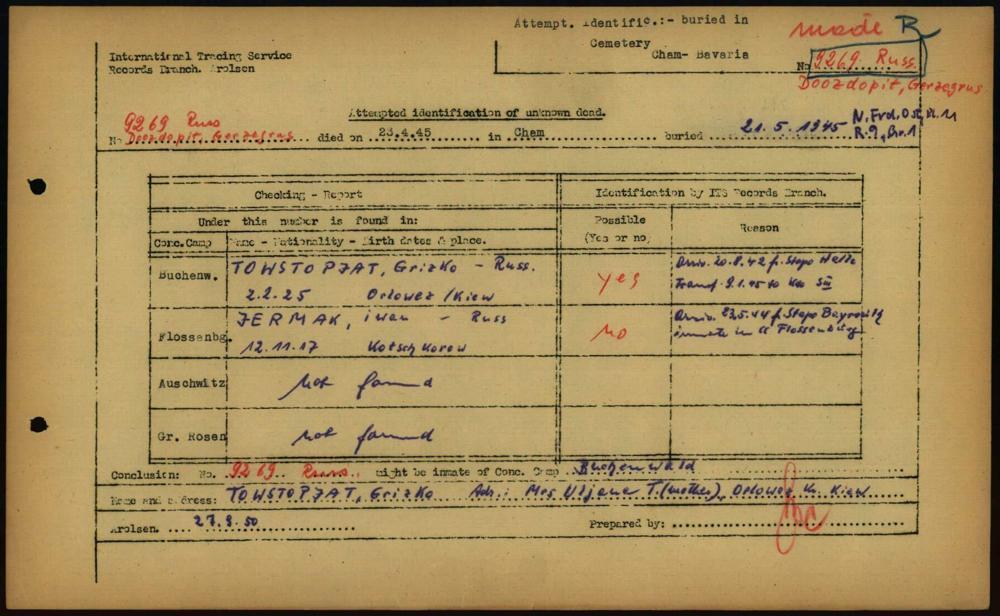 Attempt. Identific.:- buried in
Cemetery
Cham- Bavaria
made R
International Tracing Service
Records Branch. Arolsen
No 9269. Russ.
Doozdopit, Gerzegrus
Attempted identification of unknown dead.
9269 Russ
No Doozdopit, Gerzegrus died on 23.4.45 in Cham buried 21.5.1945 N. Frd. Ost, Bl. 11
R. 9, Gr. 1
Checking - Report Identification by ITS Records Branch.
Under this number is found in: Possible Reason
Conc.Camp Name - Nationality - Birth dates & place. (Yes or no)
Buchenw. TOWSTOPJAT, Grizko - Russ. yes Arriv. 20.8.42 f. Stapo Halle
2.2.25 Orlowez/Kiew Transf. 9.1.45 to Kdo SIII
Flossenbg. JERMAK, iwan - Russ No Arriv. 23.5.44 f. Stapo Bayreuth
12.11.17 Kotschkorow inmate in Flossenbürg
Auschwitz not found
Gr. Rosen not found
Conclusion: No. 9269. Russ. might be inmate of Conc. Camp Buchenwald
Name and address: TOWSTOPJAT, Grizko Adr.: Mrs Uljana T. (mother), Orlowez Kr. Kiew
Arolsen. 27.9.50 Prepared by: